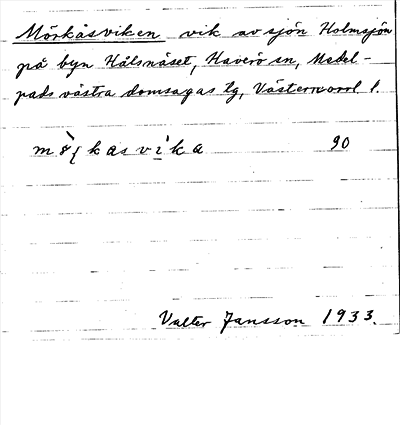 Mörkåsviken vik av sjön Holmsjön
på byn Hålsnäset, Haverö sn, Medel-
pads västra domsagas tg, Västernorrl l.
90
Valter Jansson 1933.